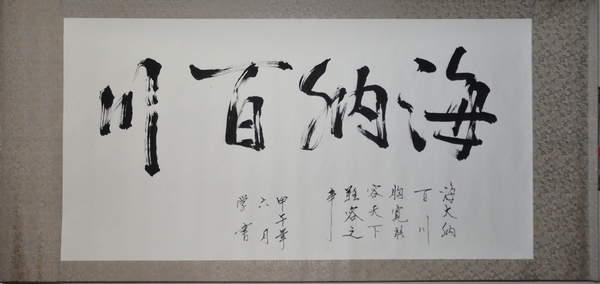 海纳百川
海大纳
百川
胸宽能
容天下
难容之
事
甲午年
六月
学书